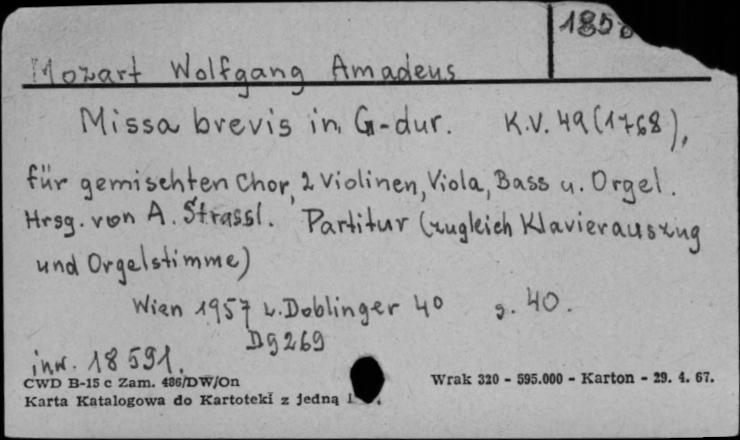 Mozart Wolfgang Amadeus
Missa brevis in G-dur. K.V. 49 (1768),
für gemischten Chor, 2 Violinen, Viola, Bass u. Orgel.
Hrsg. von A. Strassl. Partitur (zugleich Klavierauszug
und Orgelstimme)
Wien 1957 L. Doblinger 4° s. 40.
D 9269
inw. 18 591.
CWD B-15 c Zam. 486/DW/On
Wrak 320 - 595.000 - Karton - 29. 4. 67.
Karta Katalogowa do Kartoteki z jedną